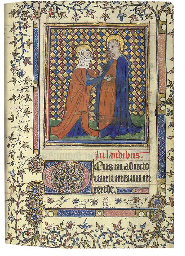 In laudibus
Deus in adiuto
rium meum in
tende.